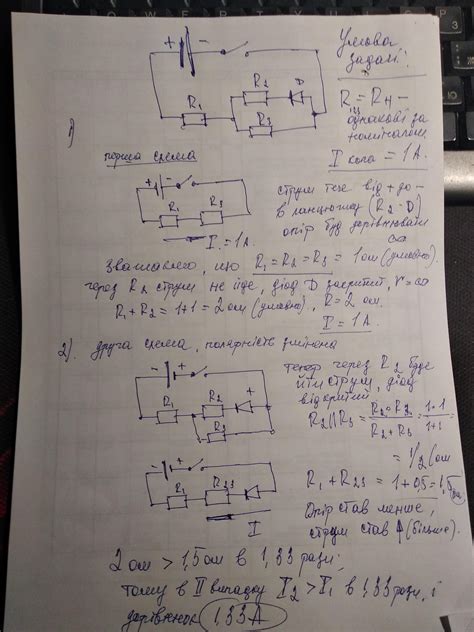 + -
Умова
задачі:
R1 R2 D
R3
R = RН –
однакові за
номіналом
I кола = 1А.
1)
перша схема
+ -
R1 R3
I = 1А
струм тече від + до –
в ланцюжку (R2 - D)
опір буд дорівнювати
∞
що R1 = R2 = R3 = 1 ом (умовно).
через R2 струм не йде, діод D закритий, r = ∞
R1 + R2 = 1+1 = 2 ом (умовно), R = 2 ом.
I = 1А.
2) друга схема, полярність змінена
- +
R1 R2
R3
тепер через R2 буде
йти струм, діод
відкритий
R2 II R3 = R2 · R3 / R2 + R3 = 1·1 / 1+1 =
= 1/2 ом
- +
R1 R23
I
R1 + R23 = 1 + 0,5 = 1,5
Опір став менше,
струм став (більше).
2 ом > 1,5 ом в 1,33 рази;
тому в II випадку I2 > I1 в 1,33 рази, і
дорівнює 1,33 А